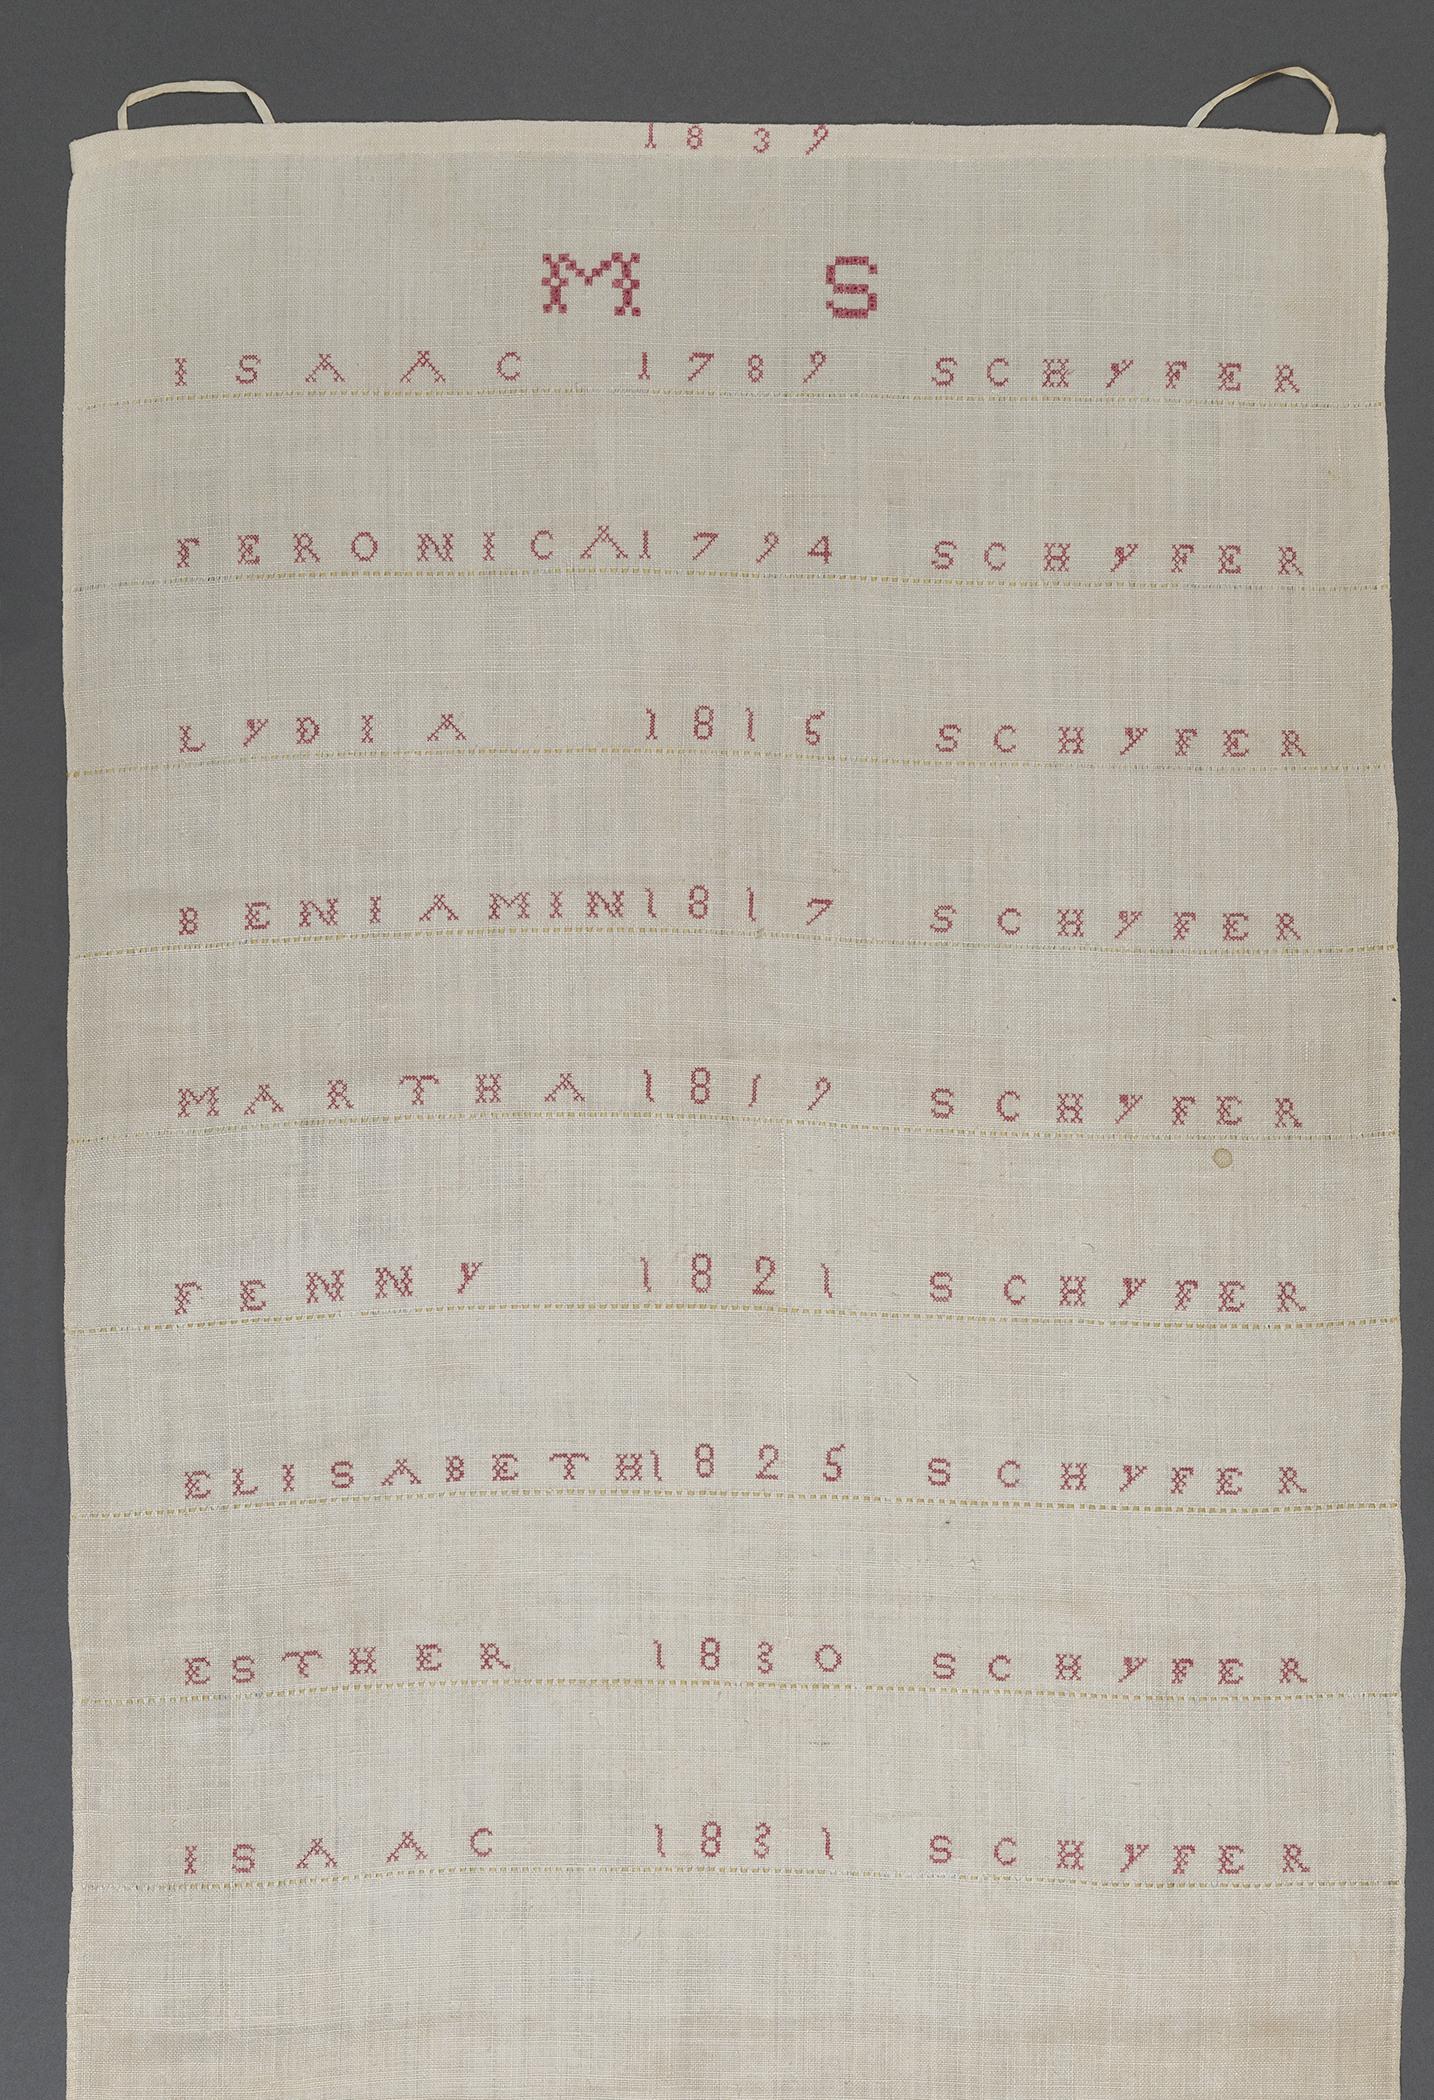 1839
M S
ISAAC 1789 SCHYFER
FERONICA 1794 SCHYFER
LYDIA 1815 SCHYFER
BENIAMIN 1817 SCHYFER
MARTHA 1819 SCHYFER
FENNY 1821 SCHYFER
ELISABETH 1825 SCHYFER
ESTHER 1830 SCHYFER
ISAAC 1831 SCHYFER